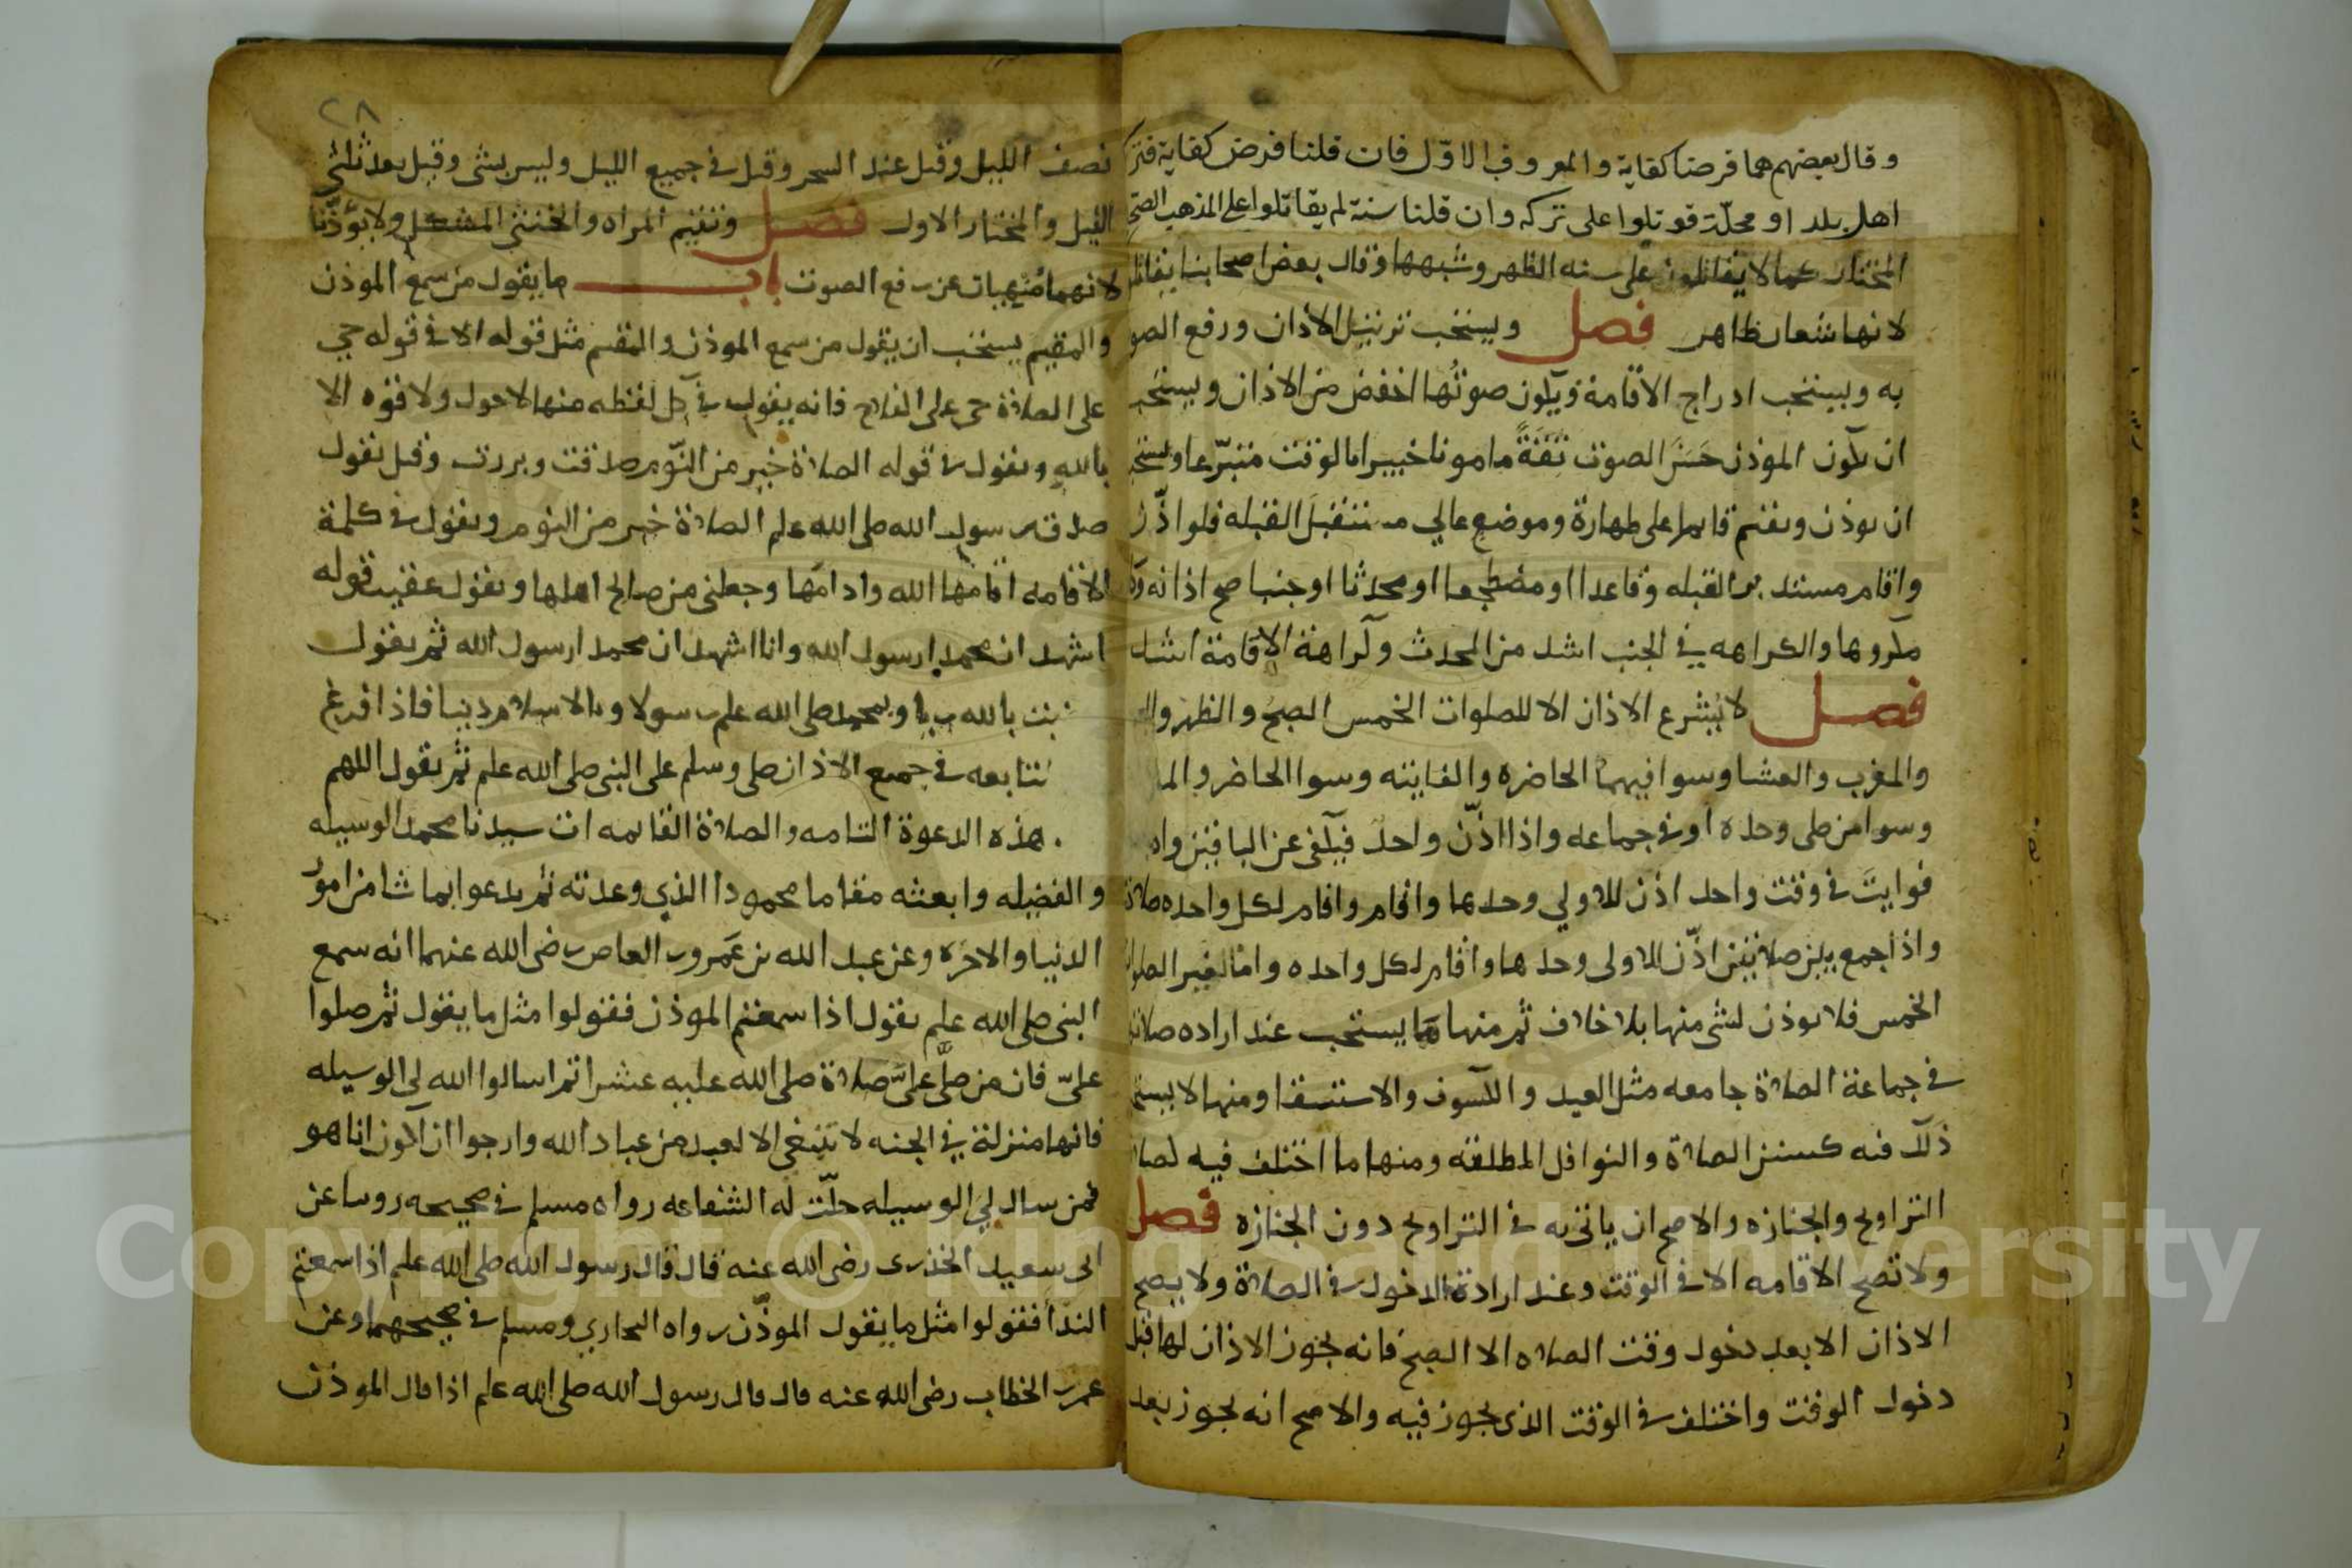 وقال بعضهم هما فرضا كفاية والمعروف الاوّل فان قلنا فرض كفاية فترك
اهل بلد او محلّة قوتلوا على تركه وان قلنا سنة لم يقاتلوا على المذهب الصحيح
المختار كما لا يقاتلون على سنه الظهر وشبهها وقال بعض اصحابنا يقاتلو
لانها شعار ظاهر فصل ويستحب ترتيل الاذان ورفع الصو
به ويستحب ادراج الاقامة ويكون صوتُها اخفض من الاذان ويستحب
ان يكون المؤذن حَسَن الصوت ثقَةً مامونا خبيرا بالوقت متبرّعا ويستحب
ان يوذن ويقيم قايما على طهارة وموضع عالي مستقبلَ القبله فلو اذّن
واقام مستدبر القبله وقاعدا او مضطجعا او محدثا او جنبا صح اذانه وكا
مكروها والكراهه في الجنب اشد من المحدث وكراهة الاقامة اشد
فصل لا يُشرع الاذان الا للصلوات الخمس الصبح والظهر وال
والمغرب والعشا وسوا فيهما الحاضره والفايته وسوا الحاضر والما
وسوا من صلى وحده او في جماعه واذا اذّن واحد فيكفى عن الباقين واد
فوايتَ في وقت واحد اذن للاولي وحدها واقام واقام لكل واحده صلاة
واذا جمع بين صلاتين اذّن للاولى وحدها واقام لكل واحده واما لغير الصلوا
الخمس فلا يوذن لشى منها بلا خلاف ثم منها ما يستحب عند اراده صلاتها
في جماعة الصلاة جامعه مثل العيد والكسوف والاستسقا ومنها لا يستح
ذلك فيه كسنن الصلاة والنوافل المطلقه ومنها ما اختلف فيه لصلا
التراويح والجنازه والاصح ان ياتى به في التراويح دون الجنازه فصل
ولا تصح الاقامه الا في الوقت وعند ارادة الدخول في الصلاة ولا يصح
الاذان الا بعد دخول وقت الصلاه الا الصبح فانه يجوز الاذان لها قبل
دخول الوقت واختلف في الوقت الذي يجوز فيه والاصح انه يجوز بعد
٢٨
نصف الليل وقيل عند السحر وقيل في جميع الليل وليس بشى وقيل بعد ثلثي
الليل والمختار الاول فصل وتقيم المراه والخنثى المشكل ولا يؤذّنا
لانهما مُنهيان عن رفع الصوت باب ما يقول من سمع الموذن
والمقيم يستحب ان يقول من سمع الموذن والمقيم مثل قوله الا في قوله حي
على الصلاة حي على الفلاح فانه يقول في كل لفظه منها لا حول ولا قوه الا
بالله ويقول في قوله الصلاة خير من النّوم صدقت وبررت وقيل يقول
صدق رسول الله صلى الله علم الصلاة خير من النوم ويقول في كلمة
الاقامه اقامها الله وادامَها وجعلني من صالح اهلها ويقول عقيب قوله
اشهد ان محمدا رسول الله وانا اشهد ان محمدا رسول الله ثم يقول
بالله ربا وبمحمد صلى الله علم رسولا وبالاسلام دينا فاذا فرغ
في جميع الاذان صلى وسلم على النبي صلى الله علم ثم يقول اللهم
هذه الدعوة التامه والصلاة القايمه ات سيدنا محمد الوسيله
والفضيله وابعثه مقاما محمودا الذي وعدته ثم يدعوا بما شا من امور
الدنيا والاخره وعن عبد الله بن عَمرو بن العاص رضى الله عنهما انه سمع
النبي صلى الله علم يقول اذا سمعتم الموذن فقولوا مثل ما يقول ثم صلوا
علىّ فان من صلّى علىّ صلاة صلى الله عليه عشرا ثم اسالوا الله لي الوسيله
فانها منزلة في الجنه لا تنبغي الا لعبد من عباد الله وارجوا ان اكون انا هو
فمن سال ليَ الوسيله حلّت له الشفاعه رواه مسلم في صحيحه روينا عن
ابى سعيد الخدرى رضى الله عنه قال قال رسول الله صلى الله علم اذا سمعتم
الندا فقولوا مثل ما يقول الموذّن رواه البخاري ومسلم في صحيحهما وعن
عمر بن الخطاب رضى الله عنه قال قال رسول الله صلى الله علم اذا قال الموذن
Copyright © King Saud University